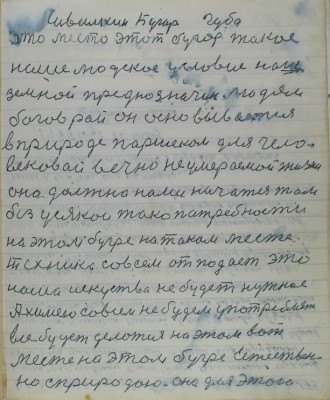 Чивилихин Бугар Губа
это место этот бугор такое
наше людское условие наш
земной предназначин людям
богов рай он основывается
в природе паринском для чело-
вековай вечно неумераемой жизни
она должно нами начатся там
без усякой тако патребности
на этом бугре на таком месте.
техника совсем отпадает это
наша искуства не будет нужное
А химею совсем не будем употреблять
все будет делотся на этом вот
месте на этом бугре Естествен-
но с природою. она для этого